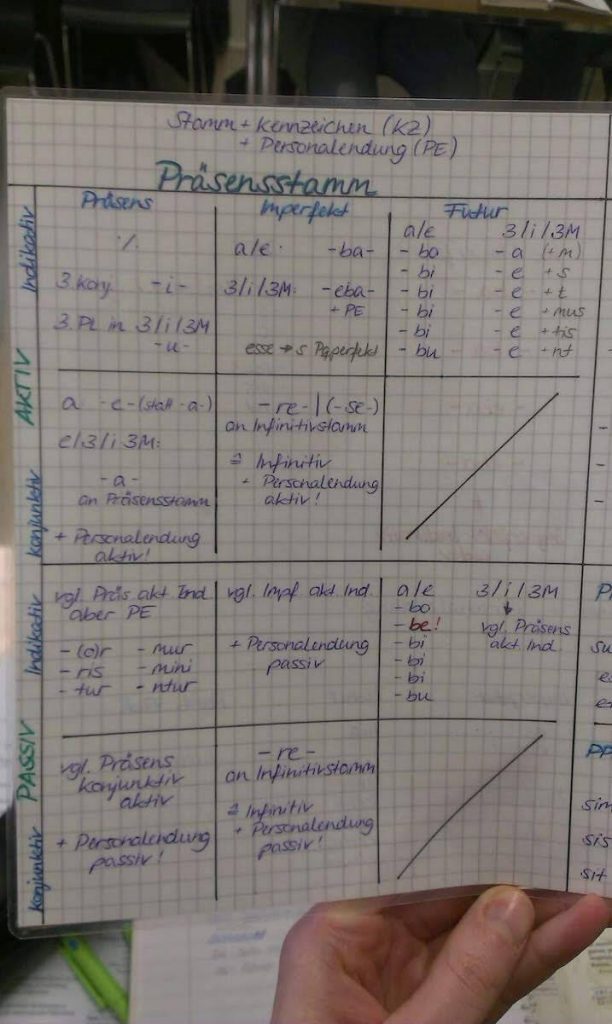 Stamm + Kennzeichen (KZ)
+ Personalendung (PE)
Präsensstamm
Präsens
Imperfekt
Futur
Indikativ
./.
3. Konj. -i-
3. Pl. in 3/i/3M
-u-
a/e: -ba-
3/i/3M: -eba-
+ PE
esse → s Pqperfekt
a/e 3/i/3M
- bo - a (+m)
- bi - e +s
- bi - e +t
- bi - e +mus
- bi - e +tis
- bu - e +nt
AKTIV
Konjunktiv
a -e- (statt -a-)
e/3/i 3M:
-a-
an Präsensstamm
+ Personalendung
aktiv!
-re- | (-se-)
an Infinitivstamm
≙ Infinitiv
+ Personalendung
aktiv!
Indikativ
vgl. Präs akt Ind
aber PE
- (o)r - mur
- ris - mini
- tur - ntur
vgl. Impf akt. Ind.
+ Personalendung
passiv
a/e 3/i/3M
- bo
- be! vgl. Präsens
- bi akt Ind.
- bi
- bi
- bu
PASSIV
Konjunktiv
vgl. Präsens
Konjunktiv
aktiv
+ Personalendung
passiv!
- re -
an Infinitivstamm
≙ Infinitiv
+ Personalendung
passiv!
su
es
PP
sim
sis
sit